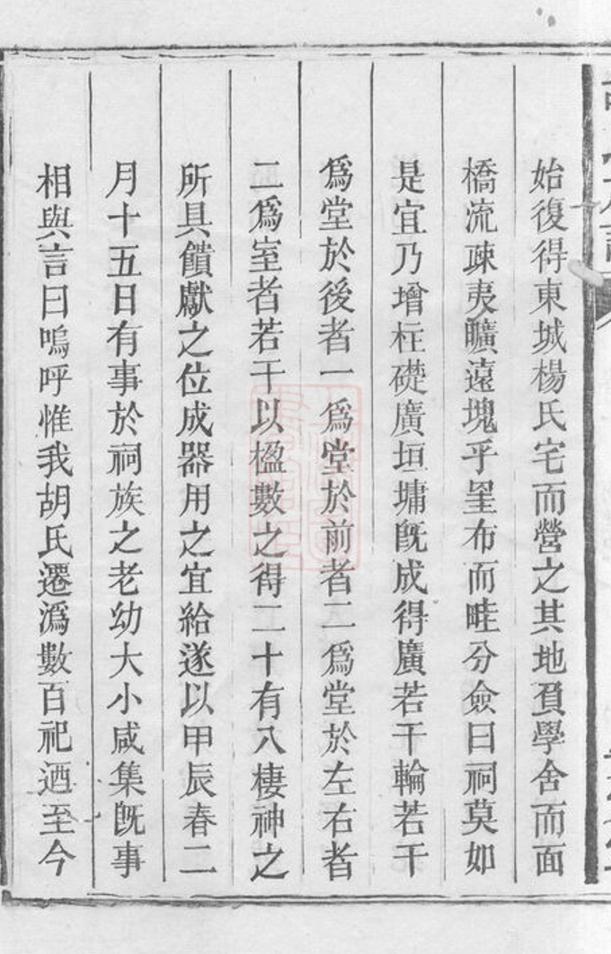 始復得東城楊氏宅而營之其地負學舍而面
橋流疎夷曠遠塊乎罣布而畦分僉曰祠莫如
是宜乃增柱礎廣垣墉旣成得廣若干輪若干
爲堂於後者一爲堂於前者二爲堂於左右者
二爲室者若干以楹數之得二十有八棲神之
所具饋獻之位成器用之宜給遂以甲辰春二
月十五日有事於祠族之老幼大小咸集旣事
相與言曰嗚呼惟我胡氏遷潙數百祀迺至今